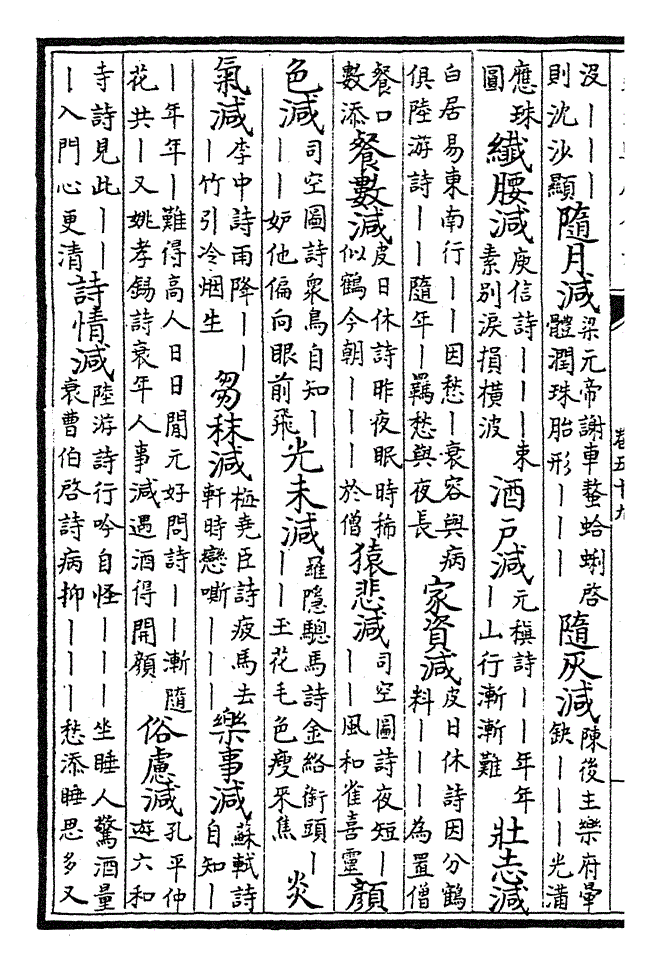 沒｜｜｜則沈沙顯 隨月減 梁元帝謝車螯蛤蜊啓體潤珠胎形｜｜｜ 隨灰減 陳後主樂府暈缺｜｜｜光滿
應珠圖 纖腰減 庾信詩｜｜｜束素別淚損橫波 酒戶減 元稹詩｜｜年年｜山行漸漸難 壯志減
白居易東南行｜｜因愁｜衰容與病俱陸游詩｜｜隨年｜羈愁與夜長 家資減 皮日休詩因分鶴料｜｜｜為置僧
餐口數添 餐數減 皮日休詩昨夜眠時稀似鶴今朝｜｜｜於僧 猿悲減 司空圖詩夜短｜｜｜風和雀喜靈 顏
色減 司空圖詩衆鳥自知｜｜｜妒他偏向眼前飛 光未減 羅隱驄馬詩金絡銜頭｜｜｜玉花毛色瘦來焦 炎
氣減 李中詩雨降｜｜｜竹引冷烟生 芻秣減 梅堯臣詩疲馬去軒時戀嘶｜｜ 樂事減 蘇軾詩自知｜
｜年年｜難得高人日日閒元好問詩｜｜漸隨花共｜又姚孝錫詩衰年人事減遇酒得開顏 俗慮減 孔平仲遊六和
寺詩見此｜｜｜入門心更清 詩情減 陸游詩行吟自怪｜｜｜坐睡人驚酒量衰曹伯啓詩病抑｜｜｜愁添睡思多又